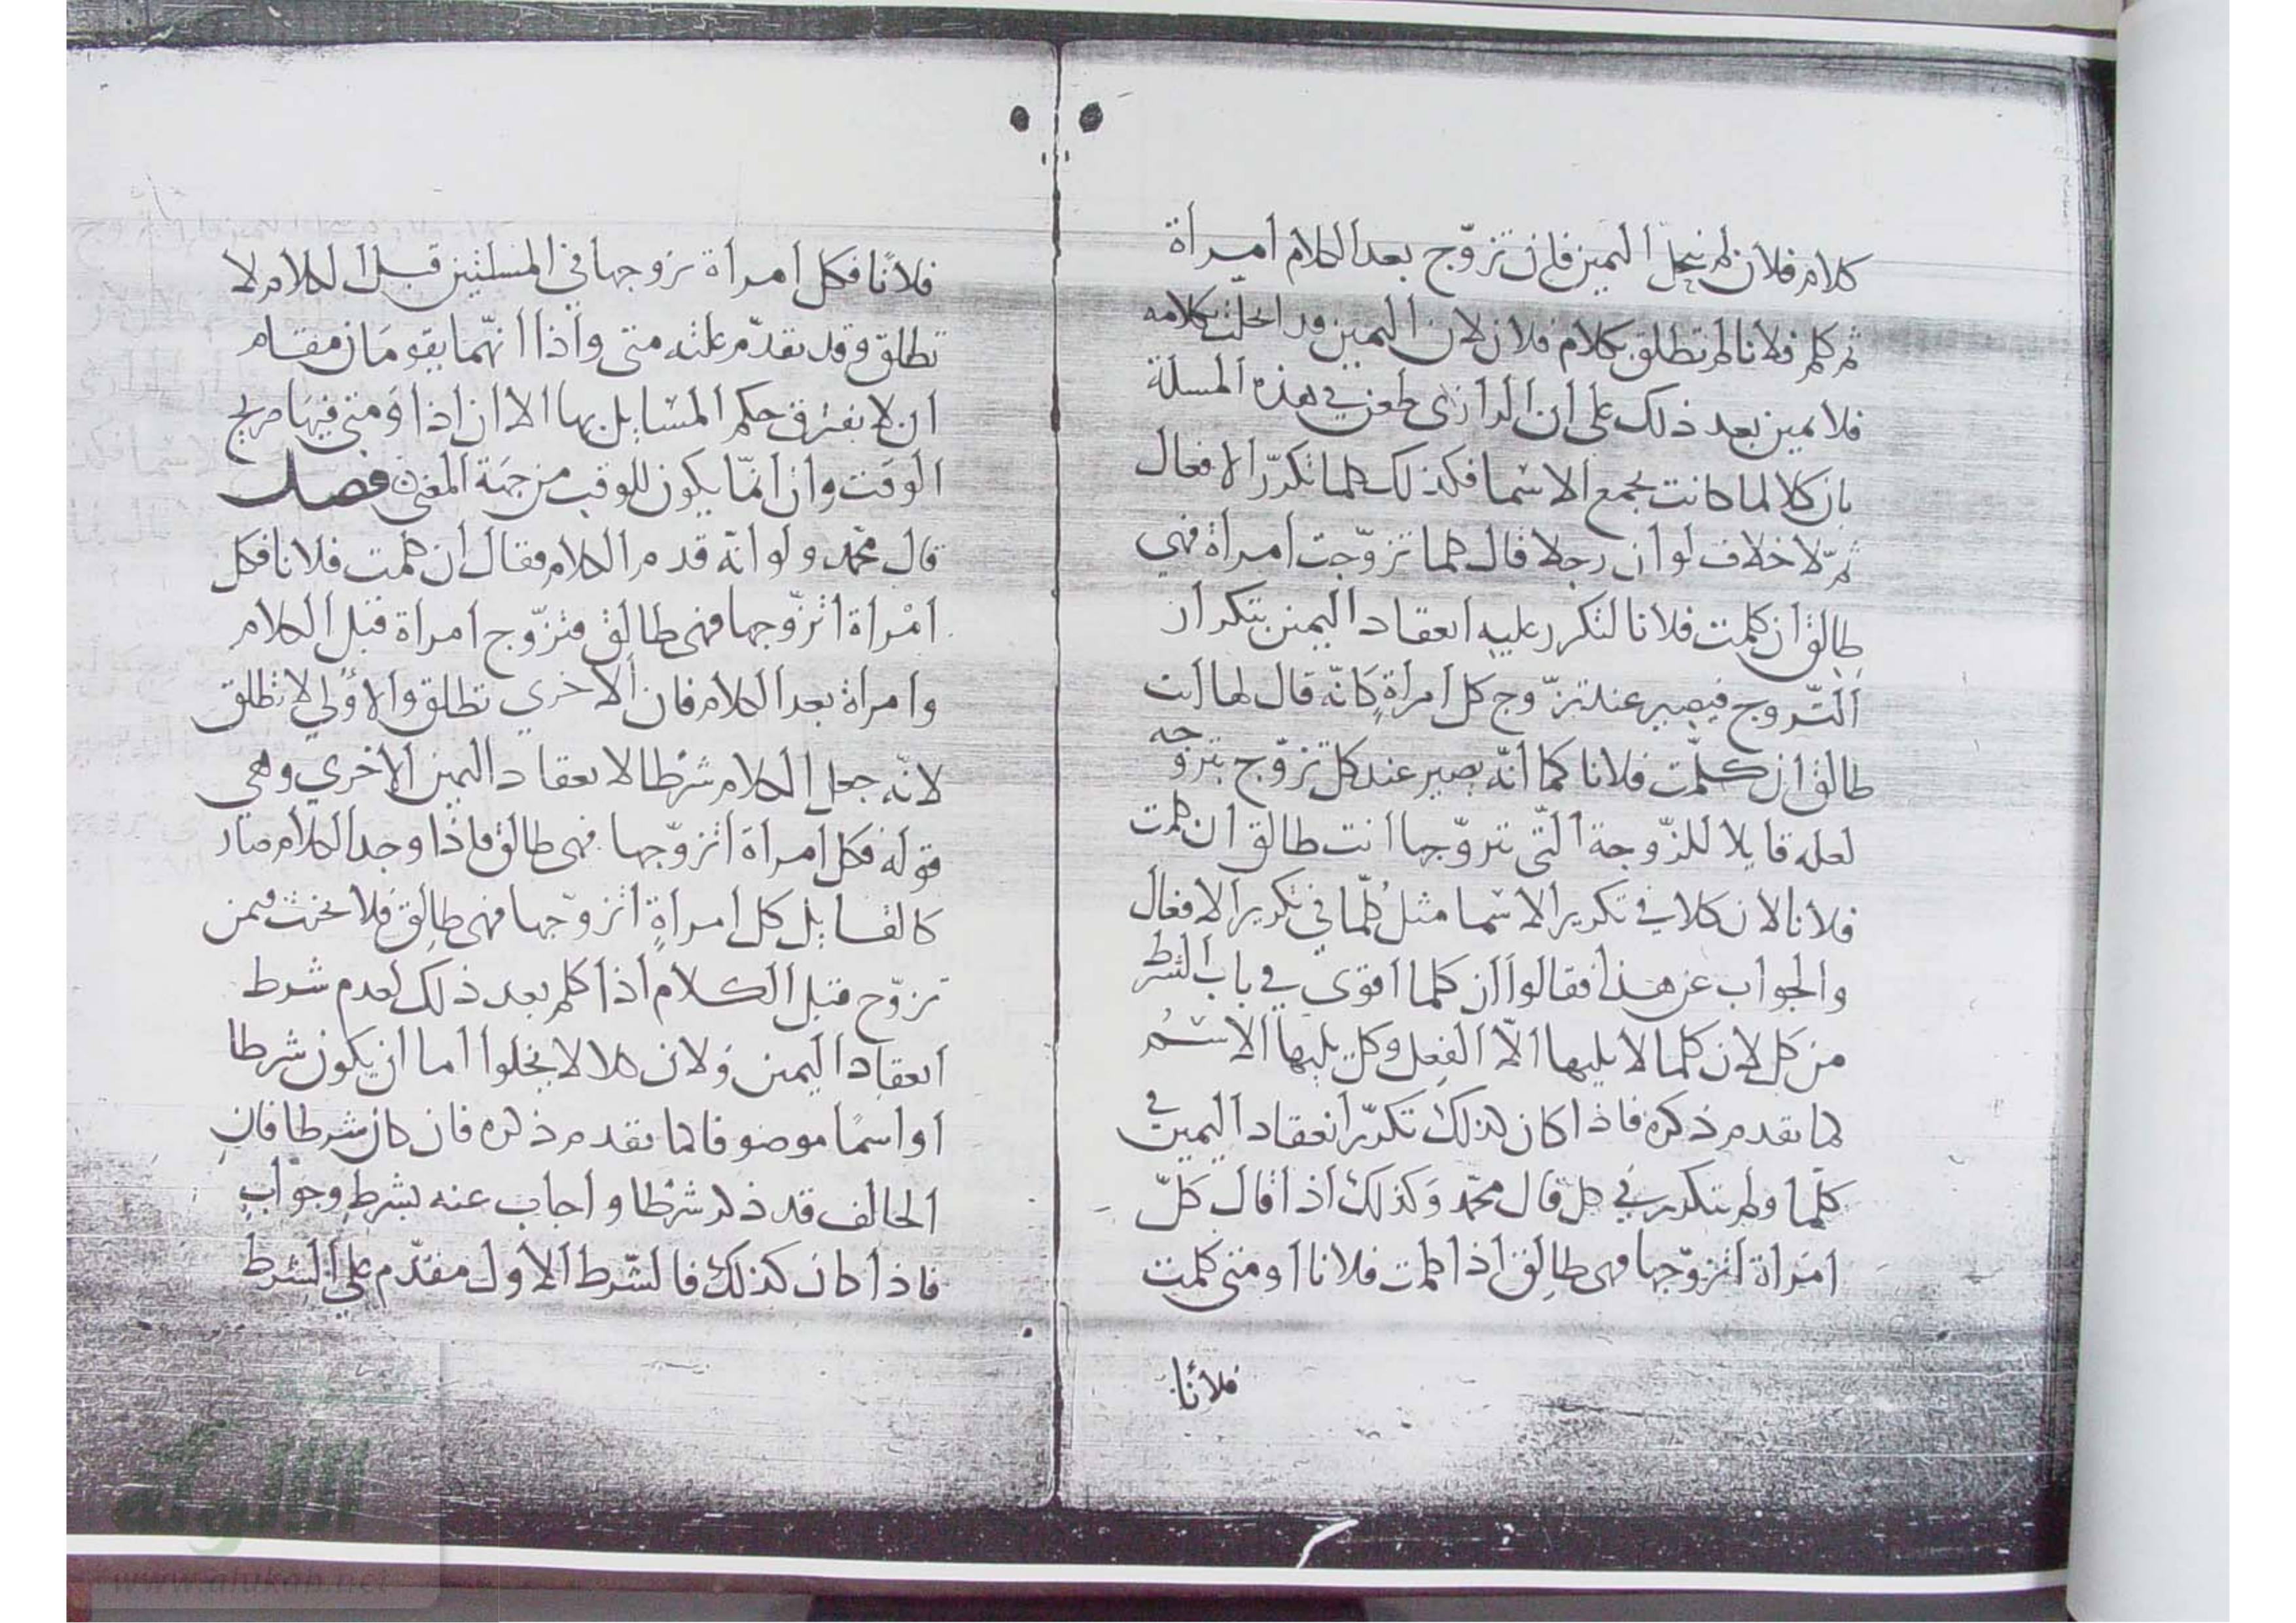 كلام فلان لم ينحل اليمين فان تزوّج بعد الكلام امراة
ثم كلم فلانا لم تطلق بكلام فلان لان اليمين قد انحلت بكلامه
فلا يمين بعد ذلك على ان الرازى طعن في هذه المسلة
بان كلا لما كانت تجمع الاسما فكذلك كلما تكرّر الافعال
ثمّ لا خلاف لو ان رجلا قال كلما تزوّجت امراة فهي
طالق ان كلمت فلانا لتكرر عليه انعقاد اليمين بتكرار
التّزوج فيصير عند تزّوج كل امراةٍ كانّه قال لها انت
طالق ان كلّمت فلانا كما انّه يصير عند كل تزوّج بتزوّجه
لعله قايلا للزّوجة التّى تتزوّجها انت طالق ان كلمت
فلانا لان كلا في تكرير الاسما مثل كُلّما في تكرير الافعال
والجواب عن هذا فقالوا ان كلما اقوى في باب الشرط
من كل لان كلما لا يليها الّا الفعل وكل يليها الاسم
لما تقدم ذكره فاذا كان كذلك تكرّر انعقاد اليمين في
كلّما ولم يتكرر في كل قال محمّد وكذلك اذا قال كلّ
امراة اتزوّجها فهى طالق اذا كلمت فلانا او متى كلمت
فلانا
فلانًا فكل امراة تزوجها في المسلتين قبل الكلام لا
تطلق وقد تقدّم علته متى واذا انّهما يقومان مقام
ان لا يفترق حكم المسايل بها الا ان اذا ومتى فيها صريح
الوقت وان انّما يكون للوقت من جهة المعنى فصل
قال محمّد ولو انّه قدم الكلام فقال ان كلمت فلانا فكل
امراة اتزوّجها فهى طالق فتزوّج امراة قبل الكلام
وامراة بعد الكلام فان الاخري تطلق والاولي لا تطلق
لانّه جعل الكلام شرطا لانعقاد اليمين الاخري وهي
قوله فكل امراة اتزوّجها فهى طالق فاذا وجد الكلام صار
كالقايل كل امراةٍ اتزوّجها فهى طالق فلا يحنث فيمن
تزوّج قبل الكلام اذا كلم بعد ذلك لعدم شرط
انعقاد اليمين ولان كلا لا يخلوا اما ان يكون شرطا
او اسمًا موضوفا لما تقدم ذكره فان كان شرطا فان
الحالف قد ذكر شرطا واجاب عنه بشرط وجواب
فاذا كان كذلك فالشّرط الاول مقدّم علي الشرط
الالوكة
www.alukah.net